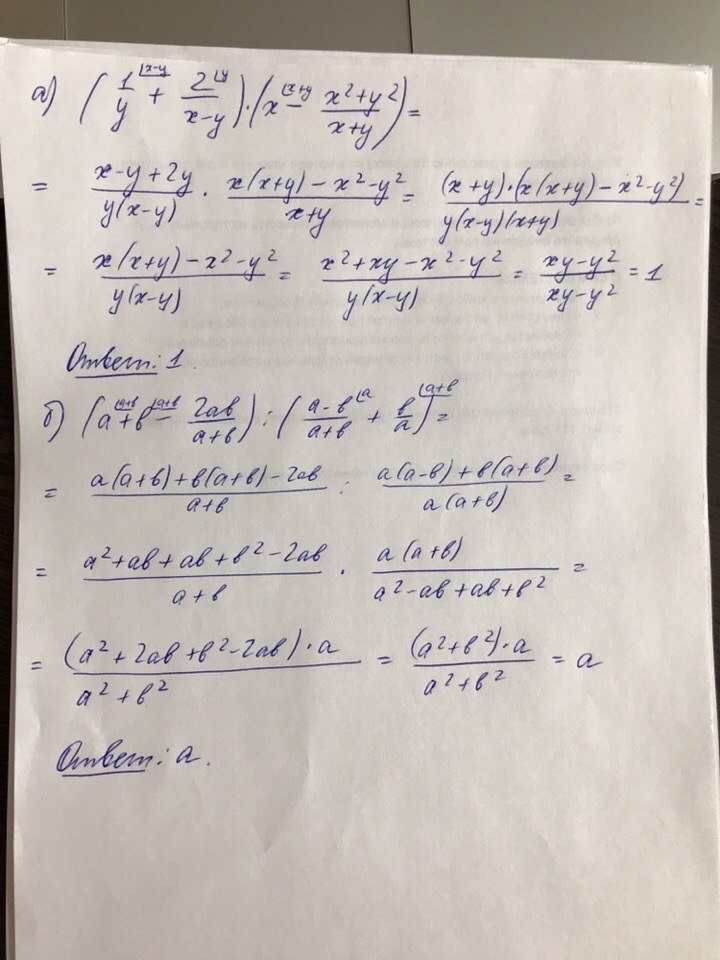 а) (1/y + 2/(x-y)) · (x - (x²+y²)/(x+y)) = |x-y |y |x+y
= (x-y+2y)/(y(x-y)) · (x(x+y)-x²-y²)/(x+y) = ((x+y)·(x(x+y)-x²-y²))/(y(x-y)(x+y)) =
= (x(x+y)-x²-y²)/(y(x-y)) = (x²+xy-x²-y²)/(y(x-y)) = (xy-y²)/(xy-y²) = 1
Ответ: 1.
б) (a+b - 2ab/(a+b)) : ((a-b)/(a+b) + b/a) = |a+b |a+b |a |a+b
= (a(a+b)+b(a+b)-2ab)/(a+b) : (a(a-b)+b(a+b))/(a(a+b)) =
= (a²+ab+ab+b²-2ab)/(a+b) · (a(a+b))/(a²-ab+ab+b²) =
= ((a²+2ab+b²-2ab)·a)/(a²+b²) = ((a²+b²)·a)/(a²+b²) = a
Ответ: a.